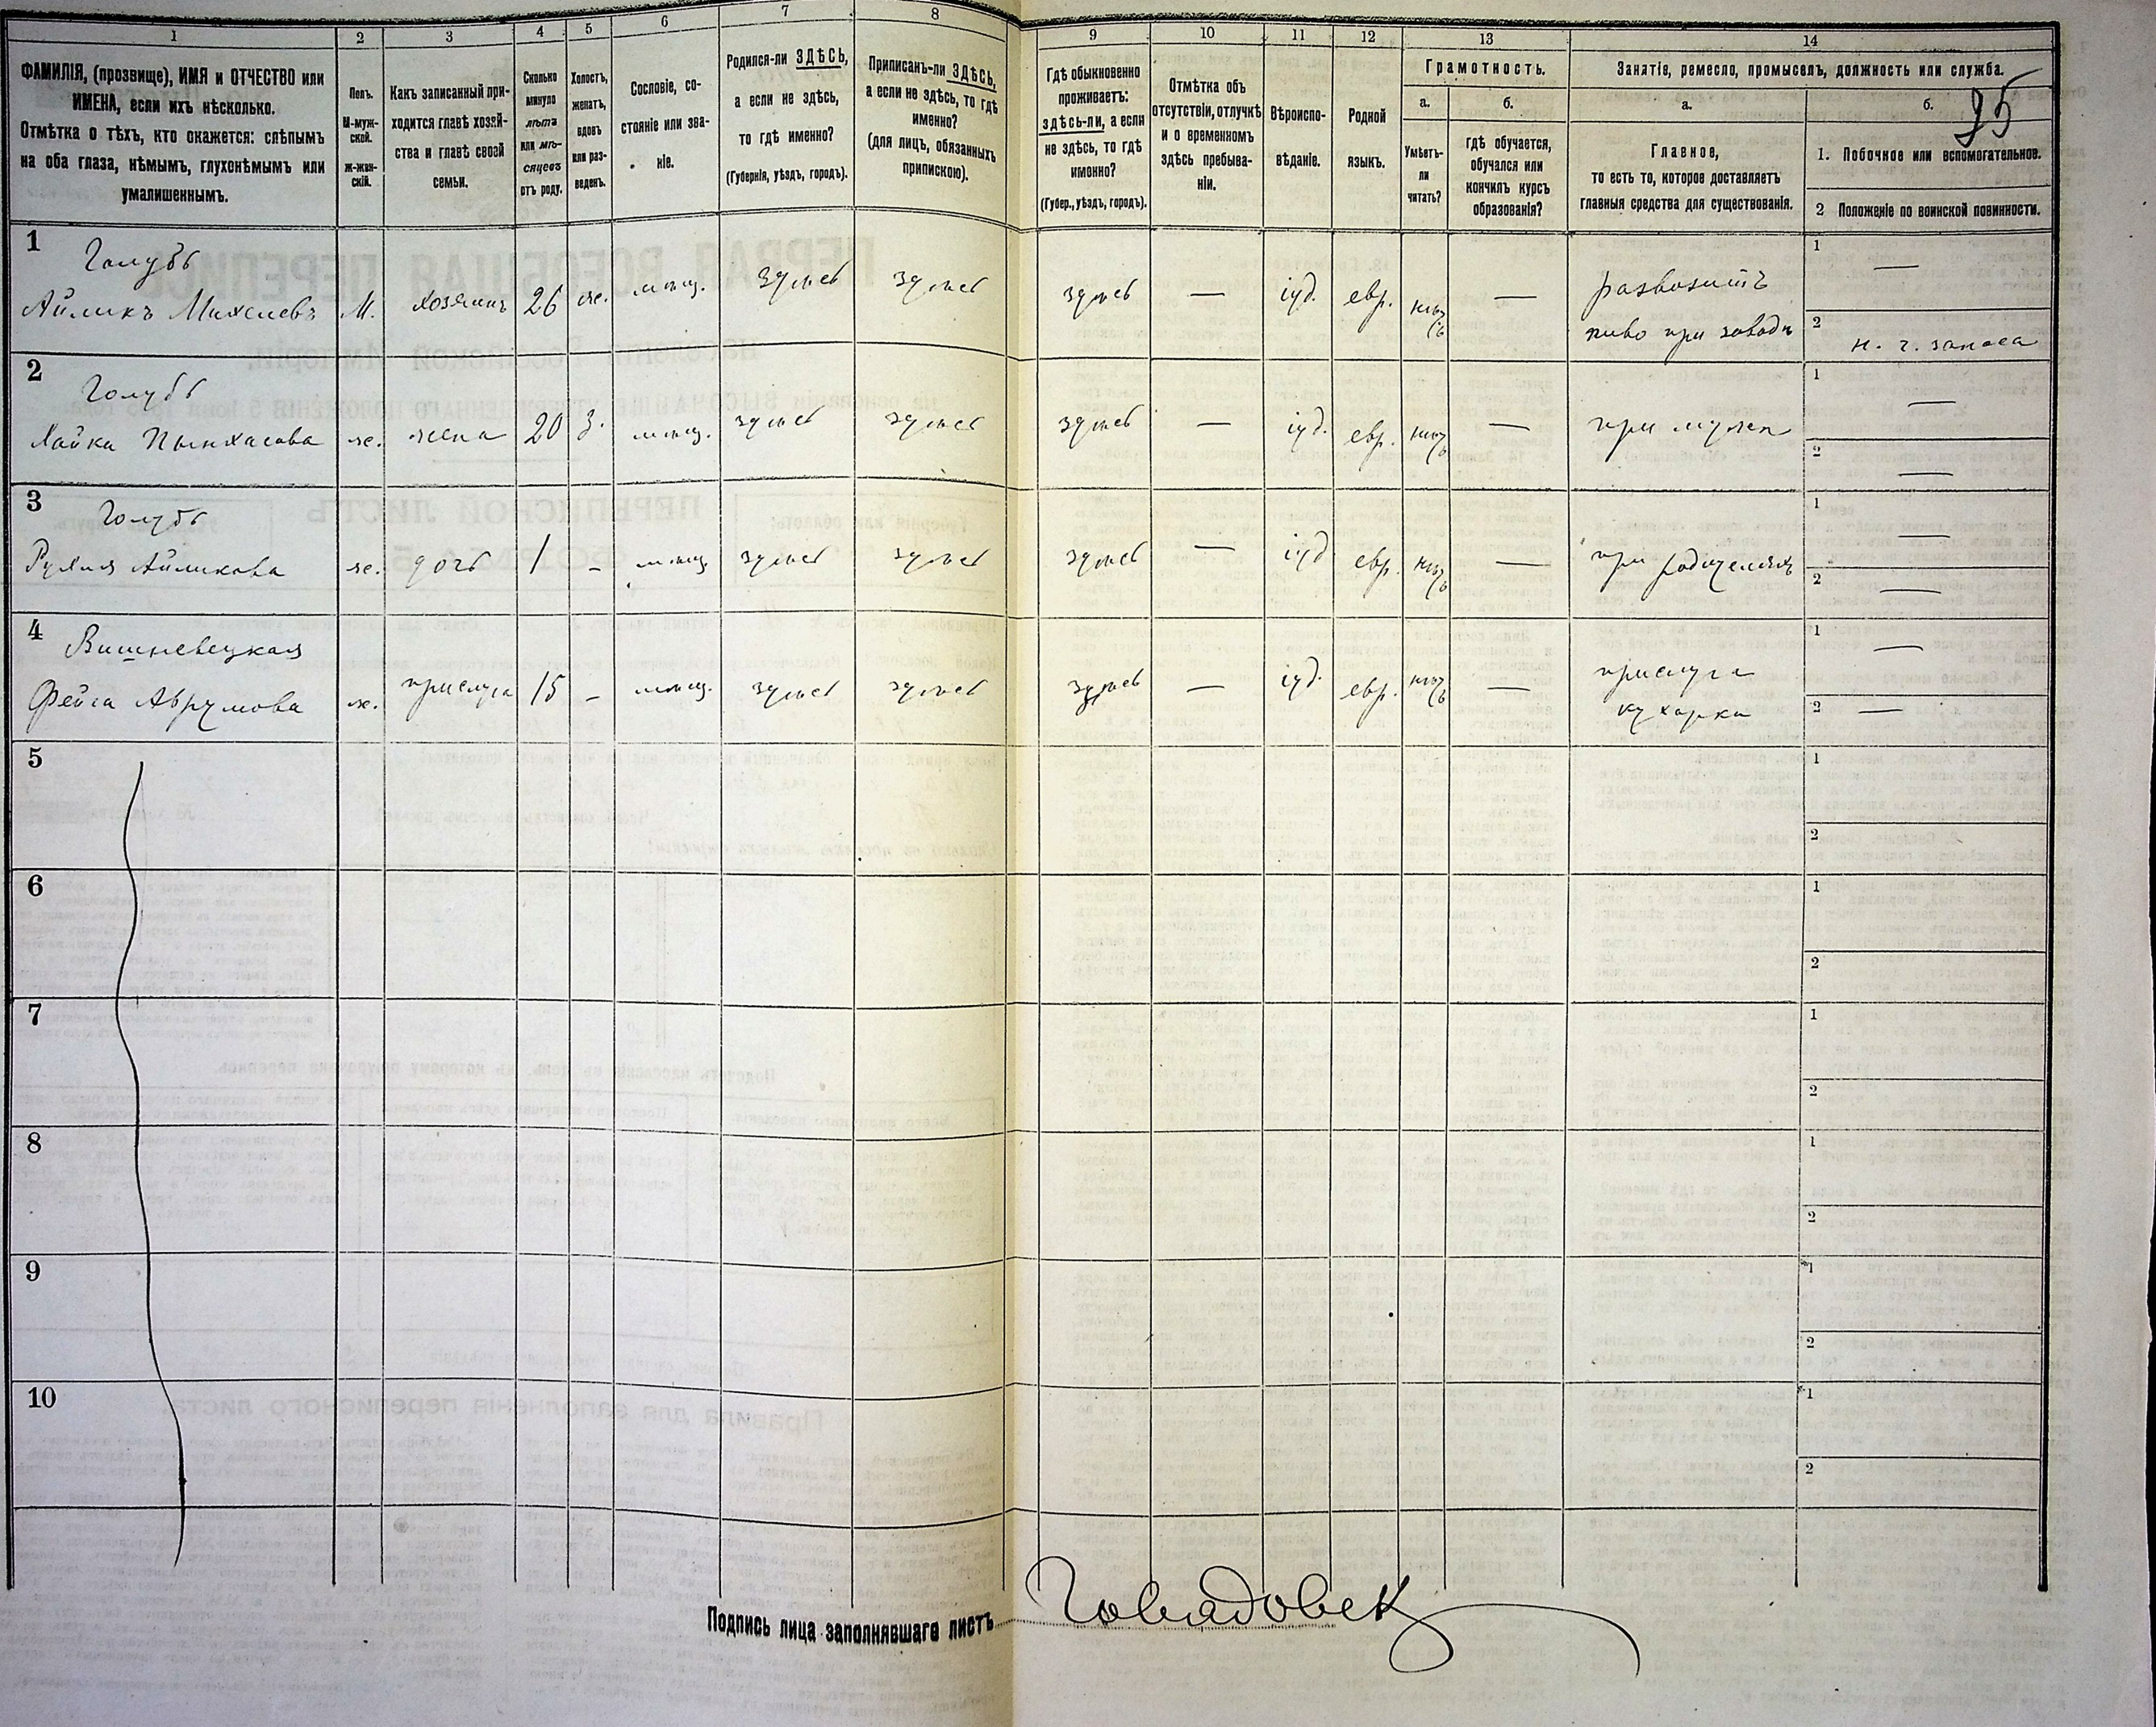 1 2 3 4 5 6 7 8 9 10 11 12 13 14
ФАМИЛІЯ, (прозвище), ИМЯ и ОТЧЕСТВО или
ИМЕНА, если ихъ нѣсколько.
Отмѣтка о тѣхъ, кто окажется: слѣпымъ
на оба глаза, нѣмымъ, глухонѣмымъ или
умалишеннымъ.
Полъ.
М-муж-
ской.
Ж-жен-
скій.
Какъ записанный при-
ходится главѣ хозяй-
ства и главѣ своей
семьи.
Сколько
минуло
лѣтъ
или мѣ-
сяцевъ
отъ роду.
Холостъ,
женатъ,
вдовъ
или раз-
веденъ.
Сословіе, со-
стояніе или зва-
ніе.
Родился-ли ЗДѢСЬ,
а если не здѣсь,
то гдѣ именно?
(Губернія, уѣздъ, городъ).
Приписанъ-ли ЗДѢСЬ,
а если не здѣсь, то гдѣ
именно?
(для лицъ, обязанныхъ
припискою).
Гдѣ обыкновенно
проживаетъ:
здѣсь-ли, а если
не здѣсь, то гдѣ
именно?
(Губер., уѣздъ, городъ).
Отмѣтка объ
отсутствіи, отлучкѣ
и о временномъ
здѣсь пребыва-
ніи.
Вѣроиспо-
вѣданіе.
Родной
языкъ.
Грамотность.
а.
Умѣетъ-
ли
читать?
б.
Гдѣ обучается,
обучался или
кончилъ курсъ
образованія?
Занятіе, ремесло, промыселъ, должность или служба.
а.
Главное,
то есть то, которое доставляетъ
главныя средства для существованія.
б.
95
1. Побочное или вспомогательное.
2 Положеніе по воинской повинности.
1 Голубь
Айликъ Михелевъ М. хозяинъ 26 же. мѣщ. здѣсь здѣсь здѣсь — іуд. евр. нѣтъ — развозитъ
пиво при заводѣ
1 —
2
2 Голубь
Хайка Пинхасова же. жена 20 з. мѣщ. здѣсь здѣсь здѣсь — іуд. евр. нѣтъ — при мужѣ
1 —
2 —
3 Голубь
Рухля Айликова же. дочь 1 - мѣщ. здѣсь здѣсь здѣсь — іуд евр. нѣтъ — при родителяхъ
1 —
2 —
4 Вишневецкая
Фейга Аврумова же. прислуга 15 - мѣщ. здѣсь здѣсь здѣсь — іуд. евр. нѣтъ — прислуга
кухарка
1 —
2 —
5 1
2
6 1
2
7 1
2
8 1
2
9 1
2
10 1
2
Подпись лица заполнявшаго листъ